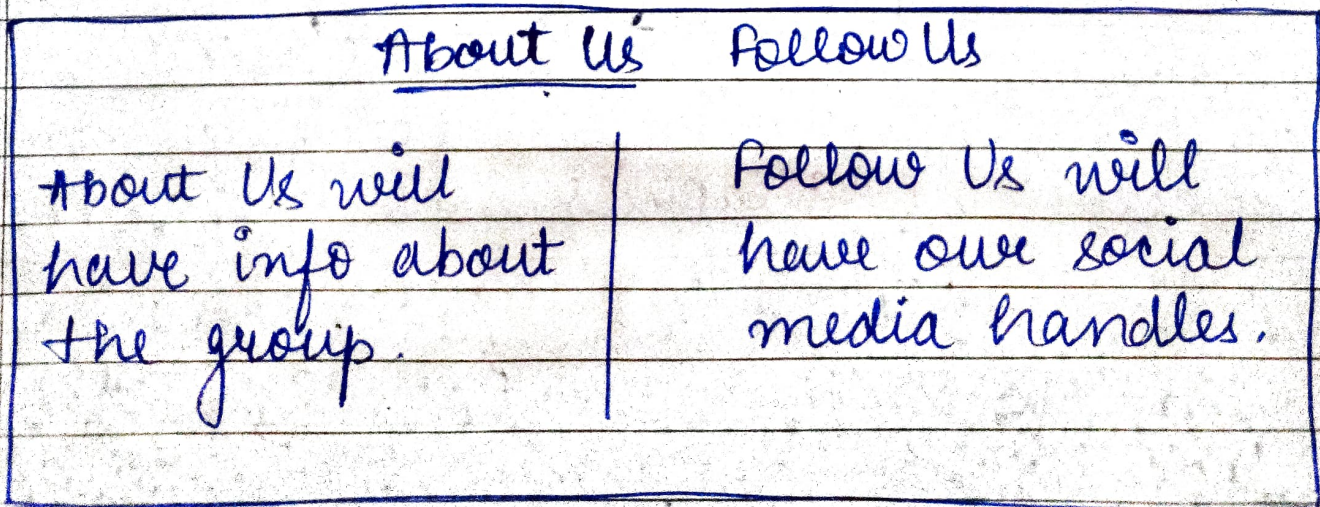 About Us Follow Us
About Us will
have info about
the group.
Follow Us will
have our social
media handles.